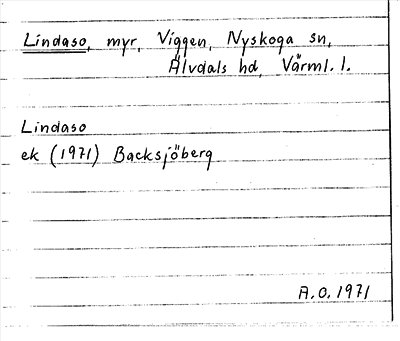 Lindaso, myr, Viggen, Nyskoga sn,
Älvdals hd, Värml. l.
Lindaso
ek (1971) Backsjöberg
A.O. 1971